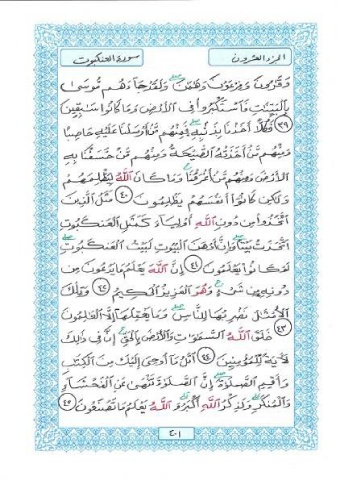 الجزء العشرون
سورة العنكبوت
وَقَٰرُونَ وَفِرْعَوْنَ وَهَٰمَٰنَ وَلَقَدْ جَآءَهُم مُّوسَىٰ
بِٱلْبَيِّنَٰتِ فَٱسْتَكْبَرُوا۟ فِى ٱلْأَرْضِ وَمَا كَانُوا۟ سَٰبِقِينَ
٣٩ فَكُلًّا أَخَذْنَا بِذَنۢبِهِۦ فَمِنْهُم مَّنْ أَرْسَلْنَا عَلَيْهِ حَاصِبًا
وَمِنْهُم مَّنْ أَخَذَتْهُ ٱلصَّيْحَةُ وَمِنْهُم مَّنْ خَسَفْنَا بِهِ
ٱلْأَرْضَ وَمِنْهُم مَّنْ أَغْرَقْنَا وَمَا كَانَ ٱللَّهُ لِيَظْلِمَهُمْ
وَلَٰكِن كَانُوٓا۟ أَنفُسَهُمْ يَظْلِمُونَ ٤٠ مَثَلُ ٱلَّذِينَ
ٱتَّخَذُوا۟ مِن دُونِ ٱللَّهِ أَوْلِيَآءَ كَمَثَلِ ٱلْعَنكَبُوتِ
ٱتَّخَذَتْ بَيْتًا وَإِنَّ أَوْهَنَ ٱلْبُيُوتِ لَبَيْتُ ٱلْعَنكَبُوتِ
لَوْ كَانُوا۟ يَعْلَمُونَ ٤١ إِنَّ ٱللَّهَ يَعْلَمُ مَا يَدْعُونَ مِن
دُونِهِۦ مِن شَىْءٍ وَهُوَ ٱلْعَزِيزُ ٱلْحَكِيمُ ٤٢ وَتِلْكَ
ٱلْأَمْثَٰلُ نَضْرِبُهَا لِلنَّاسِ وَمَا يَعْقِلُهَآ إِلَّا ٱلْعَٰلِمُونَ
٤٣ خَلَقَ ٱللَّهُ ٱلسَّمَٰوَٰتِ وَٱلْأَرْضَ بِٱلْحَقِّ إِنَّ فِى ذَٰلِكَ
لَءَايَةً لِّلْمُؤْمِنِينَ ٤٤ ٱتْلُ مَآ أُوحِىَ إِلَيْكَ مِنَ ٱلْكِتَٰبِ
وَأَقِمِ ٱلصَّلَوٰةَ إِنَّ ٱلصَّلَوٰةَ تَنْهَىٰ عَنِ ٱلْفَحْشَآءِ
وَٱلْمُنكَرِ وَلَذِكْرُ ٱللَّهِ أَكْبَرُ وَٱللَّهُ يَعْلَمُ مَا تَصْنَعُونَ ٤٥
٤٠١